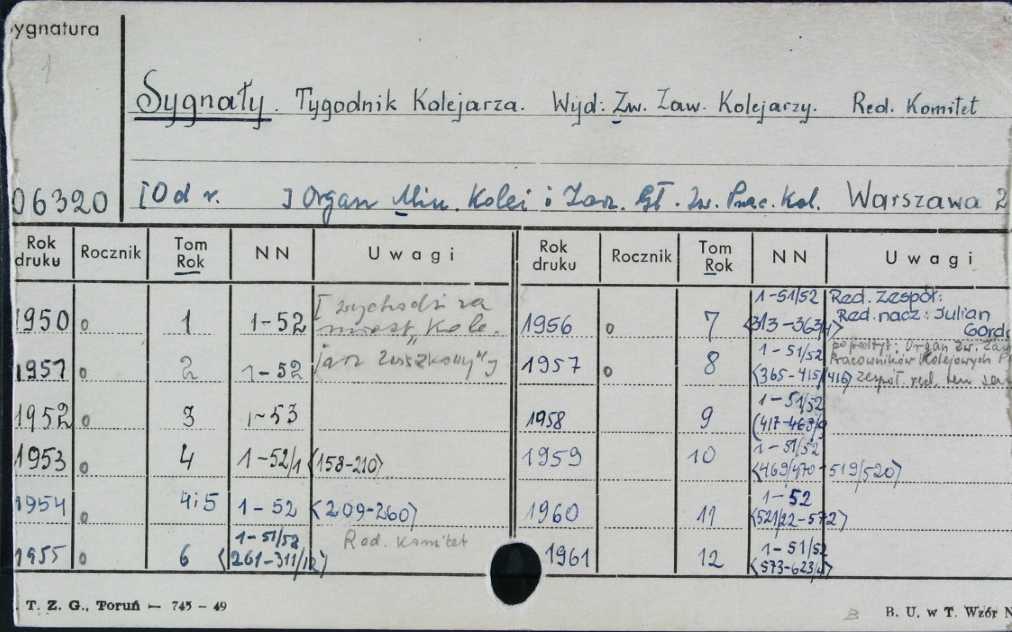 ygnatura
1
Sygnały. Tygodnik Kolejarza. Wyd: Zw. Zaw. Kolejarzy. Red. Komitet
06320 [Od r. ] Organ Min. Kolei i Zarz. Gł. Zw. Prac. Kol. Warszawa 2
Rok druku Rocznik Tom Rok NN Uwagi Rok druku Rocznik Tom Rok NN Uwagi
1950 o 1 1-52 [wychodzi za miast „Kole.
1951 o 2 1-52 jarz Związkowy"]
1952 o 3 1-53
1953 o 4 1-52/1 <158-210>
1954 o 4i5 1-52 <209-260>
1955 o 6 1-51/52 <261-311/12> Red. Komitet
1956 o 7 1-51/52 <313-363/4> Red. Zespół: Red. nacz: Julian
1957 o 8 1-51/52 <365-415/416> podtyt: Organ Zw. Zaw. Pracowników Kolejowych zespół red. ten sam
1958 9 1-51/52
1959 10 1-51/52 <469/470-519/520>
1960 11 1-52 <521/22-572>
1961 12 1-51/52
T. Z. G., Toruń — 745 - 49
B. U. w T. Wzór N